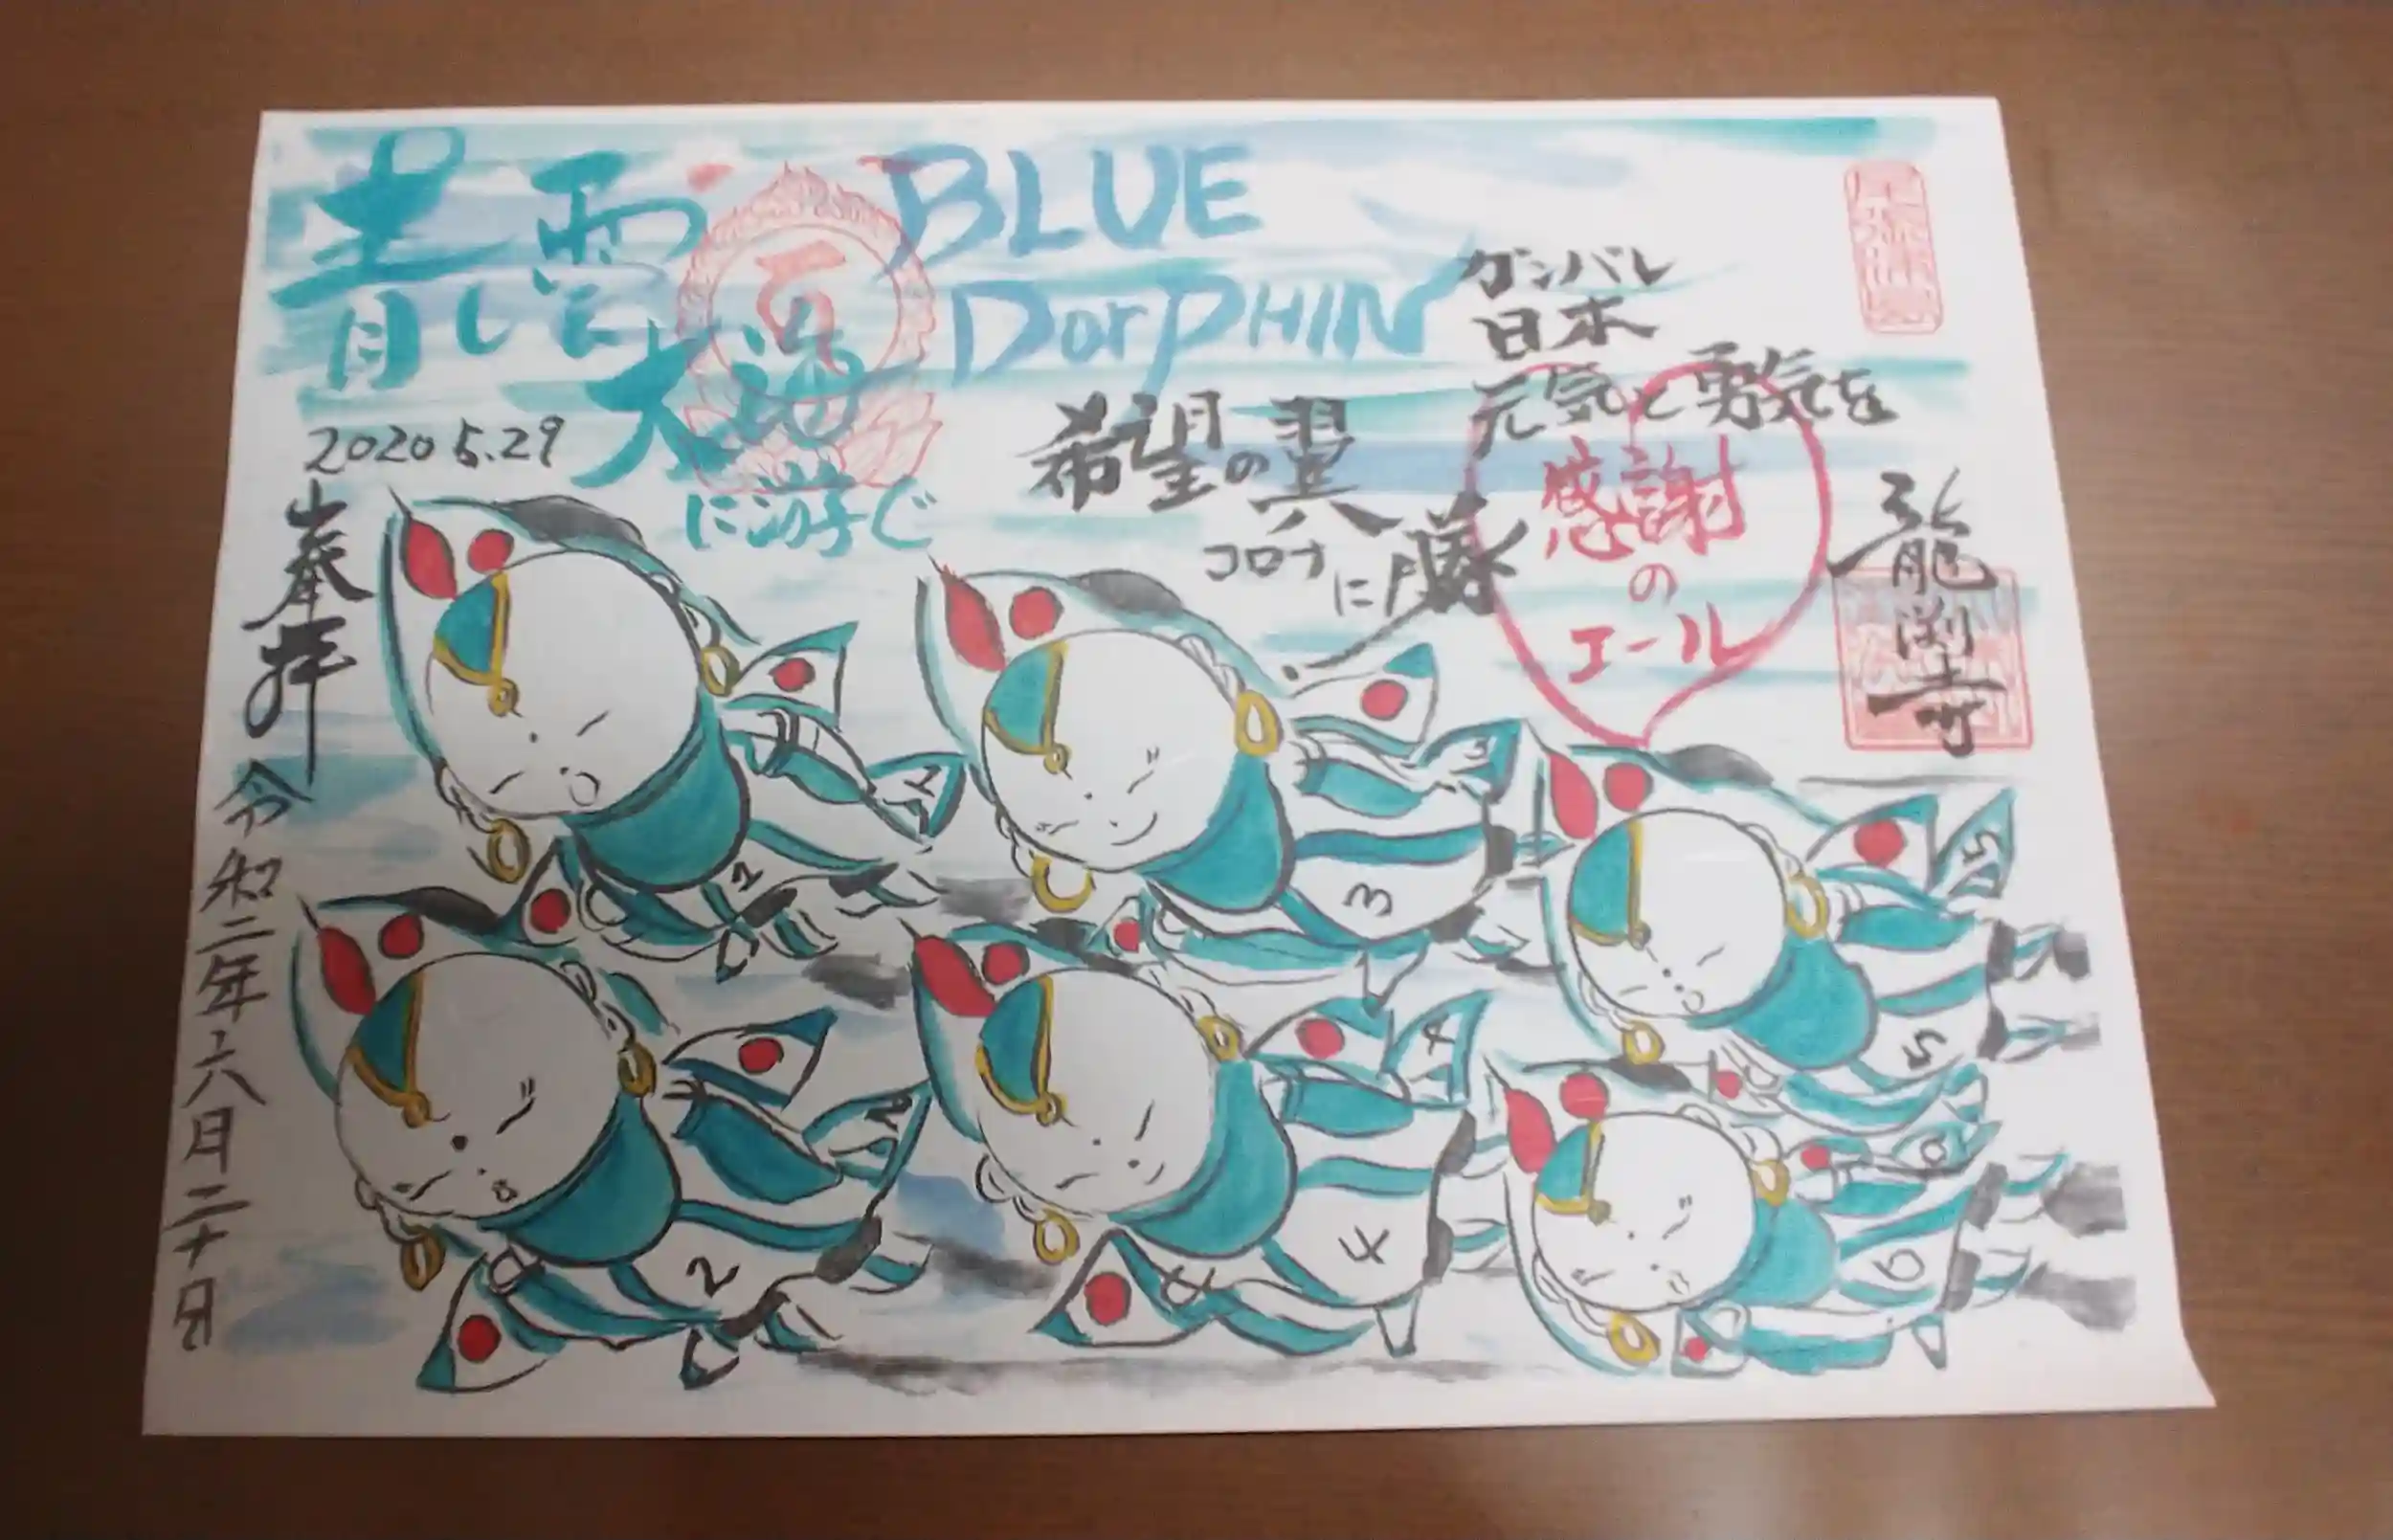 青し雲
大海
に游ぐ
BLUE
DorPHIN
2020 5.29
奉拝
令和二年六月二十日
希望の翼
コロナ
に勝く
ガンバレ
日本
元気と勇気を
感謝
の
エール
龍渕寺
1
1
2
2
3
3
4
4
4
5
5
6
6